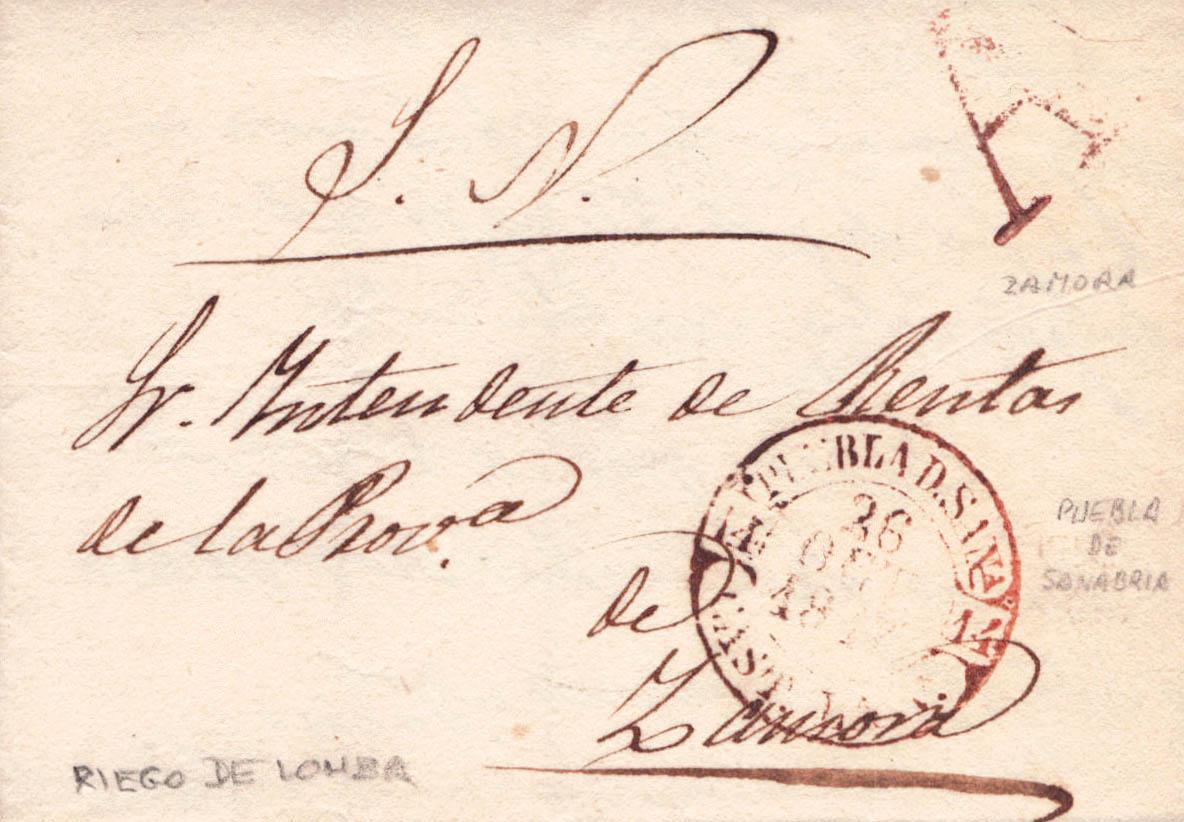 S. N.
A
ZAMORA
Sr. Intendente de Rentas
de la Prova.
de
Zamora
PUEBLA D. SANA.
26
OCT
18
12
12
CAST
PUEBLA
DE
SANABRIA
RIEGO DE LOMBA